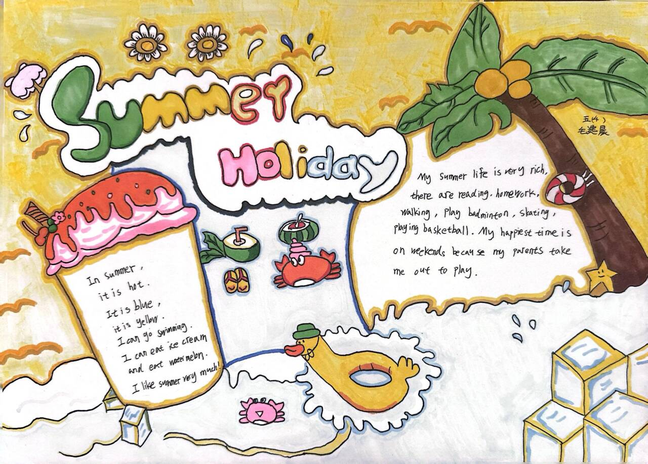 Summer
Holiday
五(4)
In summer,
it is hot.
It is blue,
it is yellow.
I can go swimming.
I can eat ice cream
and eat watermelon.
I like summer very much!
My summer life is very rich,
there are reading. homework,
walking, play badminton, skating,
playing basketball. My happiest time is
on weekends because my parents take
me out to play.